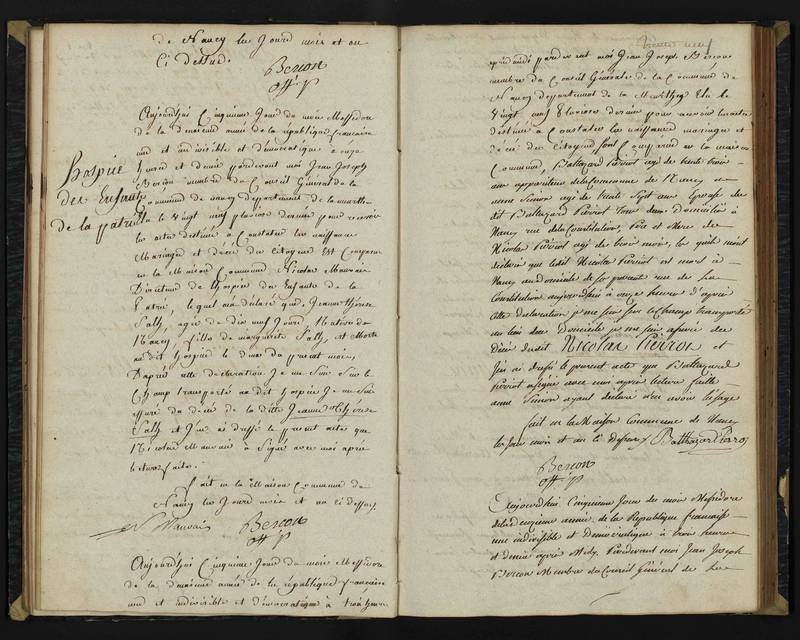 de Nancy les Jourd mois et an
Ci dessus.
Berson
off. p
Aujourd'hui Cinquieme Jour du mois Messidore
de la deuxieme année de la république française
une et indivisible et démocratique à onze
heures et demie pardevant moi Jean Joseph
Berson membre du Conseil Général de la
Commune de Nancy département de la meurthe
élu le vingt neuf pluviose dernier pour recevoir
les actes destinés à Constater les naissances
Mariages et décès des Citoyens Est Comparu
en la Maison Commune Nicolas Mauvais
Directeur de l'hospice des Enfants de la
Patrie, lequel m'a déclaré que Jeanne thérese
Sally, agée de dix neuf Jours, Native de
Nancy, fille de marguerite Sally, est Morte
au dit hospice le du présent mois,
D'après cette déclaration Je me Suis Sur le
Champ transporté au dit hospice Je me Suis
assuré du décès de la ditte Jeanne Thérese
Sally et J'en ai dressé le présent acte que
Nicolas Mauvais à Signé avec moi après
lecture faite.
Fait en la Maison Commune de
Nancy les Jours mois et an ci dessus,
N Mauvais Berson
off. p
Aujourd'hui Cinquieme Jour du mois Messidore
de la deuxieme année de la république française
une et indivisible et démocratique à trois heures
hospice
des Enfants
de la patrie
trente neuf
après midi pardevant moi Jean Joseph Berson
membre du Conseil Générale de la Commune de
Nancy département de la Meurthe Elu le
Vingt neuf Pluviose dernier pour recevoir les actes
destinés à Constater les naissances mariages et
décès des Citoyens Sont Comparus en la maison
Commune, Baltazard Pierrot agé de trente trois
ans appariteur de la Commune de Nancy et
anne Simon agée de trente Sept ans Epouse du
dit Baltazard Pierrot tous deux Domiciliés à
Nancy rue de la Constitution, Père et Mere de
Nicolas Pierrot agé de trois mois, les quels m'ont
déclaré que ledit Nicolas Pierrot est mort à
Nancy au domicile de ses parents rue de La
Constitution aujourd'hui à onze heures d'après
cette déclaration je me suis sur le champ transporté
au lieu du Domicile je me suis assuré du
Décès dudit Nicolas Pierron et
J'ai dressé le présent acte que Balthazard
Pierrot a signé avec moi après lecture faitte
anne Simon ayant déclaré n'en avoir l'usage
fait en la Maison Commune de Nancy
les jour mois et an ci dessus Balthazar Pierrot
Berson
off. p
Aujourd'hui Cinquieme Jour du mois Messidore
dela deuxieme année de la Republique française
une indivisible et Démocratique à trois heures
et demie après Midy Pardevant moi Jean Joseph
Berson Membre du Conseil Général de La